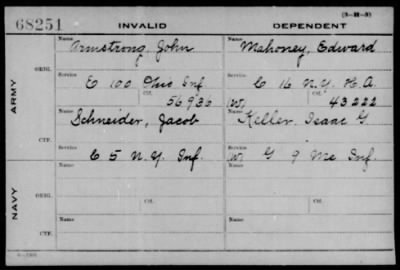 (3—H—5)
68251 INVALID DEPENDENT
ARMY
ORIG.
Name Armstrong, John
Name Mahoney, Edward
Service E 100 Ohio Inf
Service C 16 N.Y. H.A.
Ctf. 56936
(W) Ctf. 43222
CTF.
Name Schneider, Jacob
Name Keller, Isaac G.
Service E 5 N.Y. Inf.
Service (W) G 9 Me Inf.
NAVY
ORIG.
Name Ctf.
Name Ctf.
CTF.
Name
Name